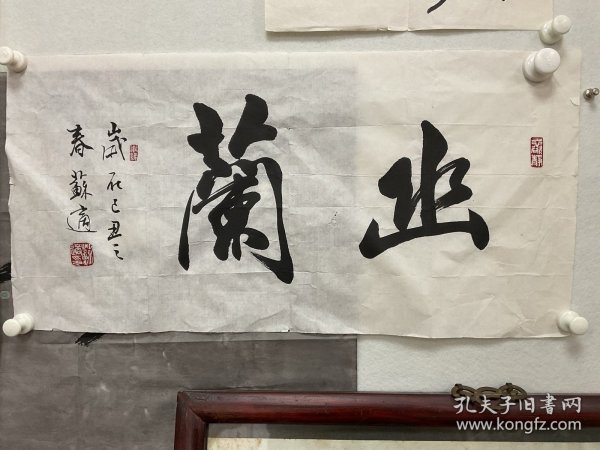 幽蘭
歲在己丑之
春 蘇適
孔夫子旧书网
www.kongfz.com